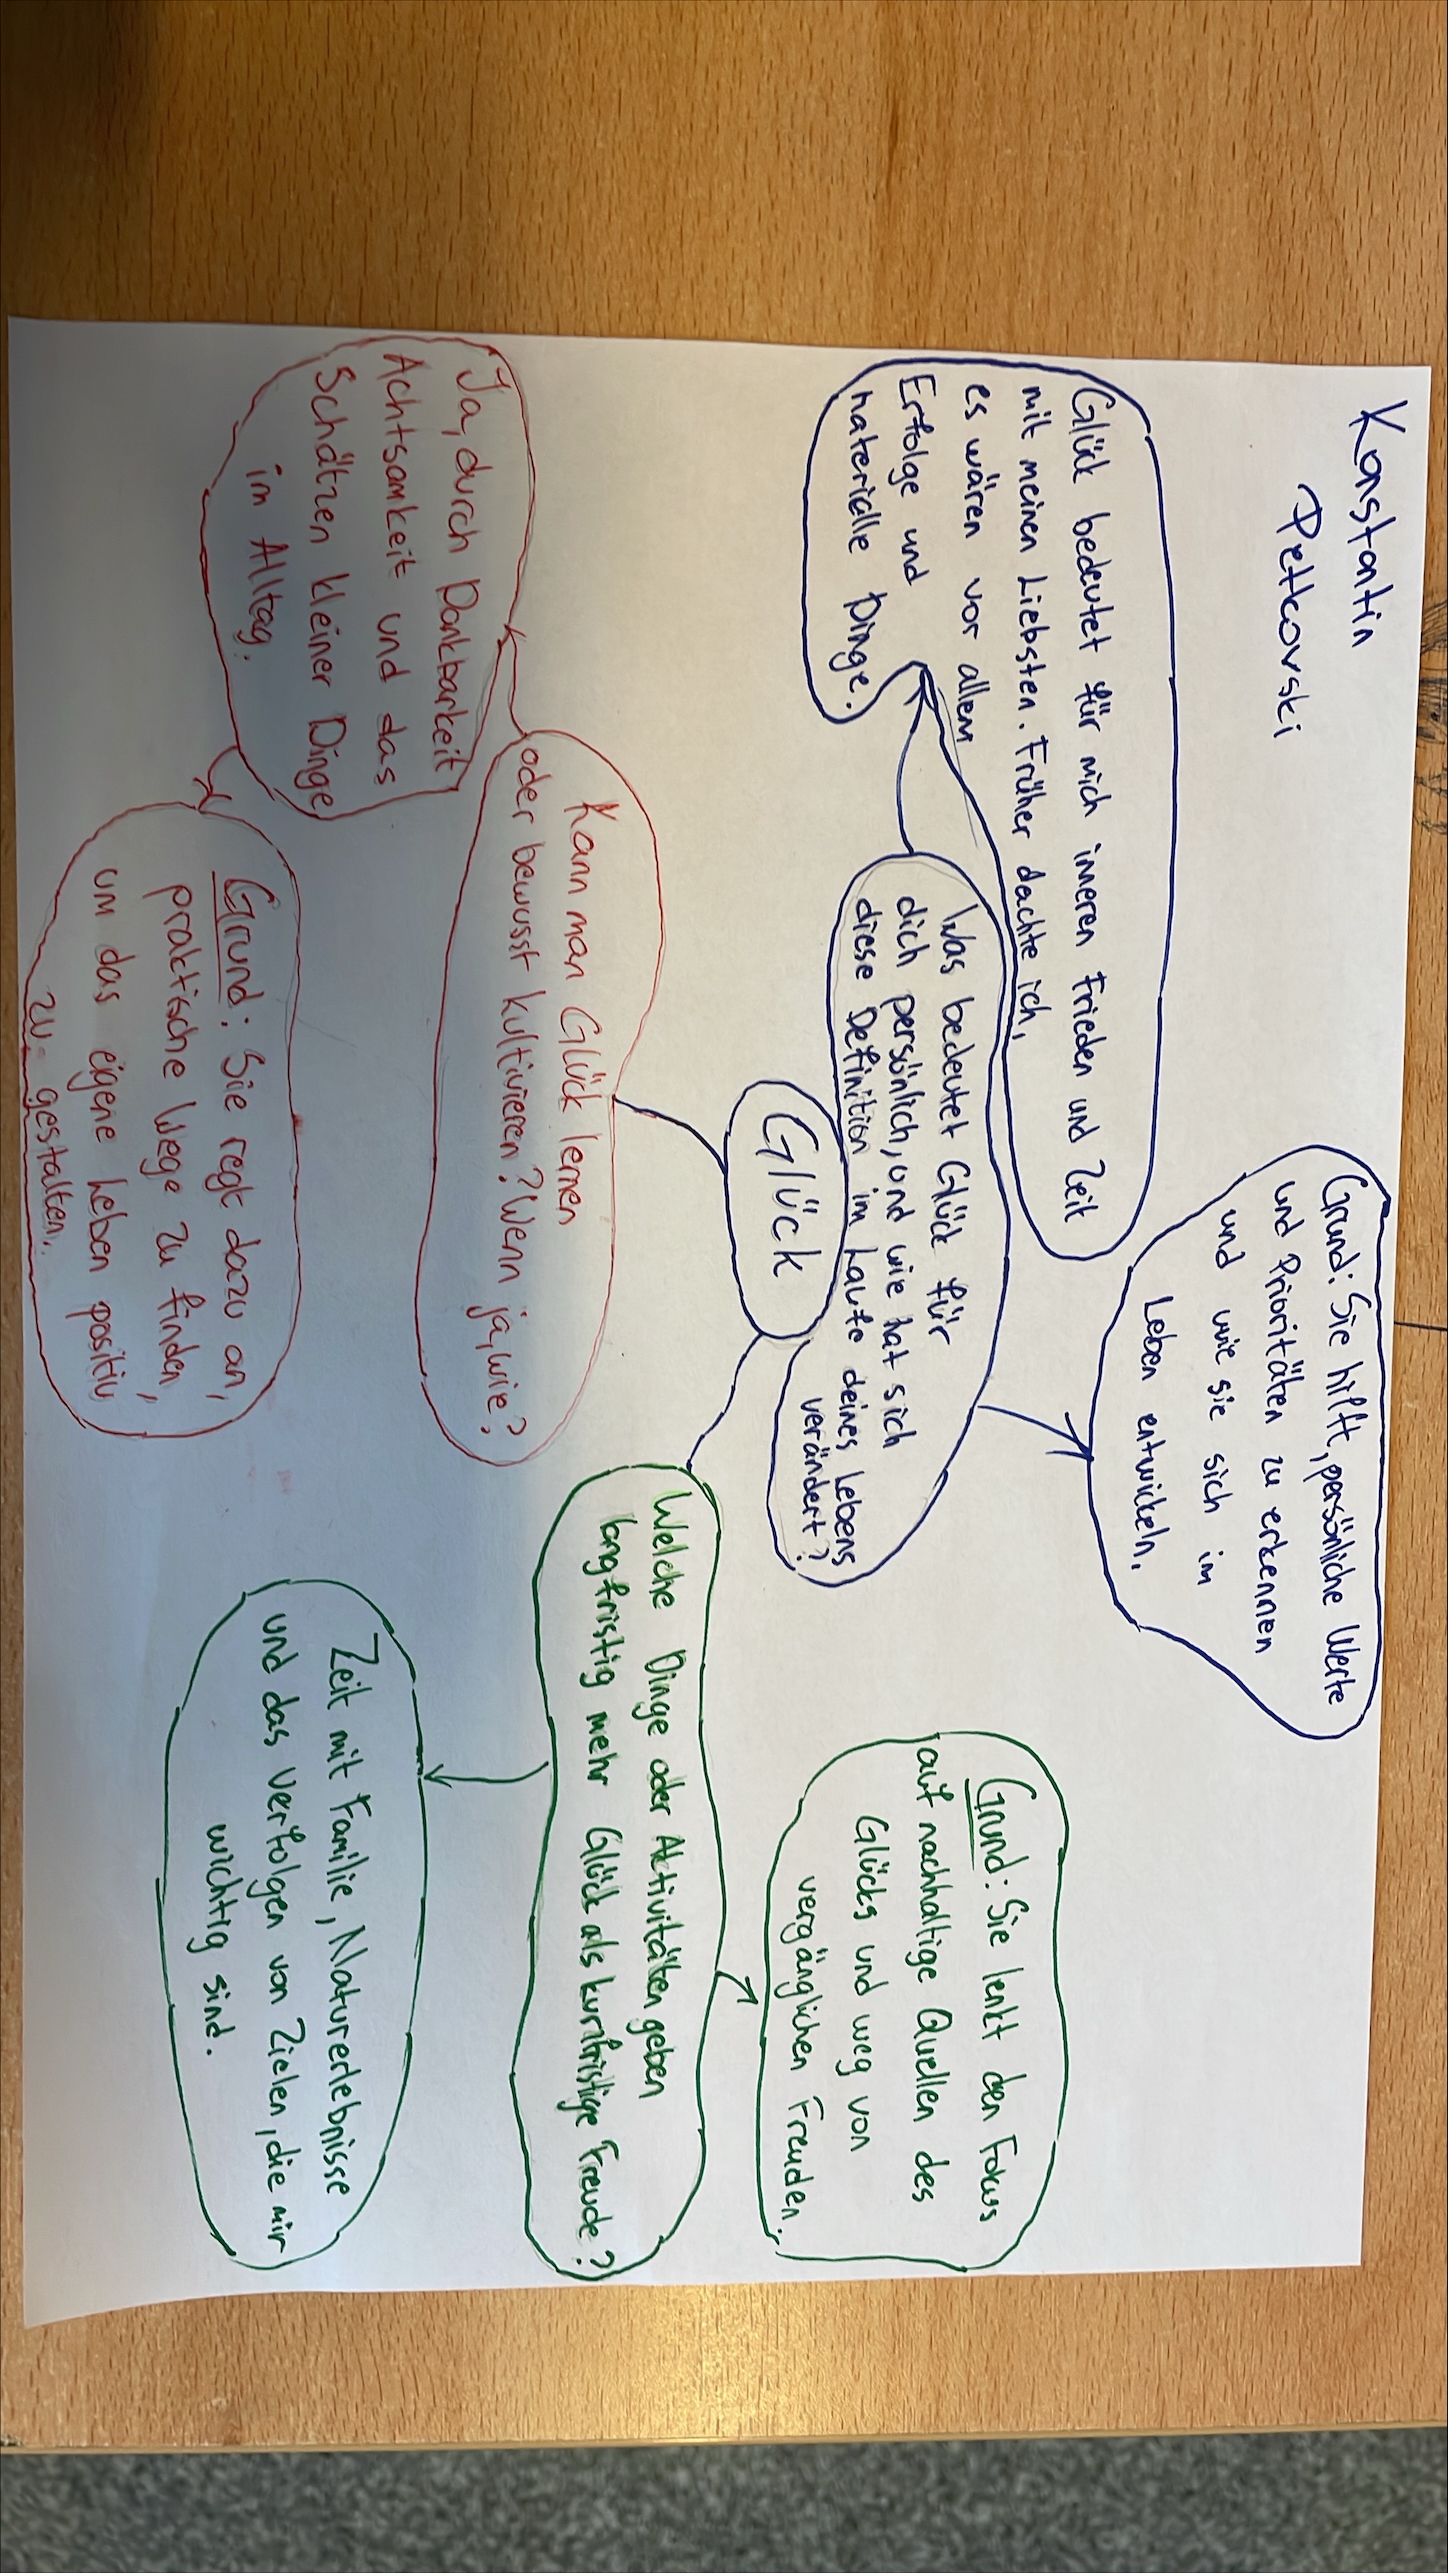 Konstantin
Petkovski
Glück bedeutet für mich inneren Frieden und Zeit
mit meinen Liebsten. Früher dachte ich,
es wären vor allem
Erfolge und
materielle Dinge.
Grund: Sie hilft, persönliche Werte
und Prioritäten zu erkennen
und wie sie sich im
Leben entwickeln.
Was bedeutet Glück für
dich persönlich, und wie hat sich
diese Definition im Laufe deines Lebens
verändert?
Glück
Grund: Sie lenkt den Fokus
auf nachhaltige Quellen des
Glücks und weg von
vergänglichen Freuden.
Kann man Glück lernen
oder bewusst kultivieren? Wenn ja, wie?
Welche Dinge oder Aktivitäten geben
langfristig mehr Glück als kurzfristige Freude?
Ja, durch Dankbarkeit
Achtsamkeit und das
Schätzen kleiner Dinge
im Alltag.
Grund: Sie regt dazu an,
praktische Wege zu finden,
um das eigene Leben positiv
zu gestalten.
Zeit mit Familie, Naturerlebnisse
und das Verfolgen von Zielen, die mir
wichtig sind.